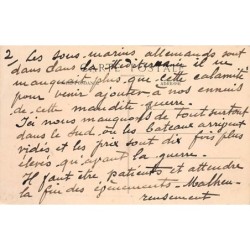 2 Ces sous-marins allemands sont
dans dans la Méditerranée il ne
CARTE POSTALE
manquait plus que cette calamité
pour venir ajouter à nos ennuis
de cette maudite guerre.
Ici nous manquons de tout surtout
dans le sud, où les bateaux arrivent
vides et les prix sont dix fois plus
élevés qu'avant la guerre.
Il faut être patients et attendre
la fin des évènements - Malheu-
reusement